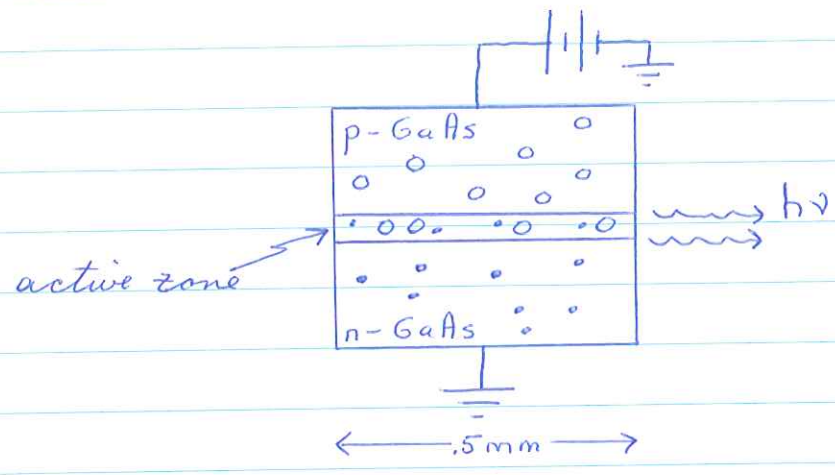 p-GaAs
hν
active zone
n-GaAs
.5mm